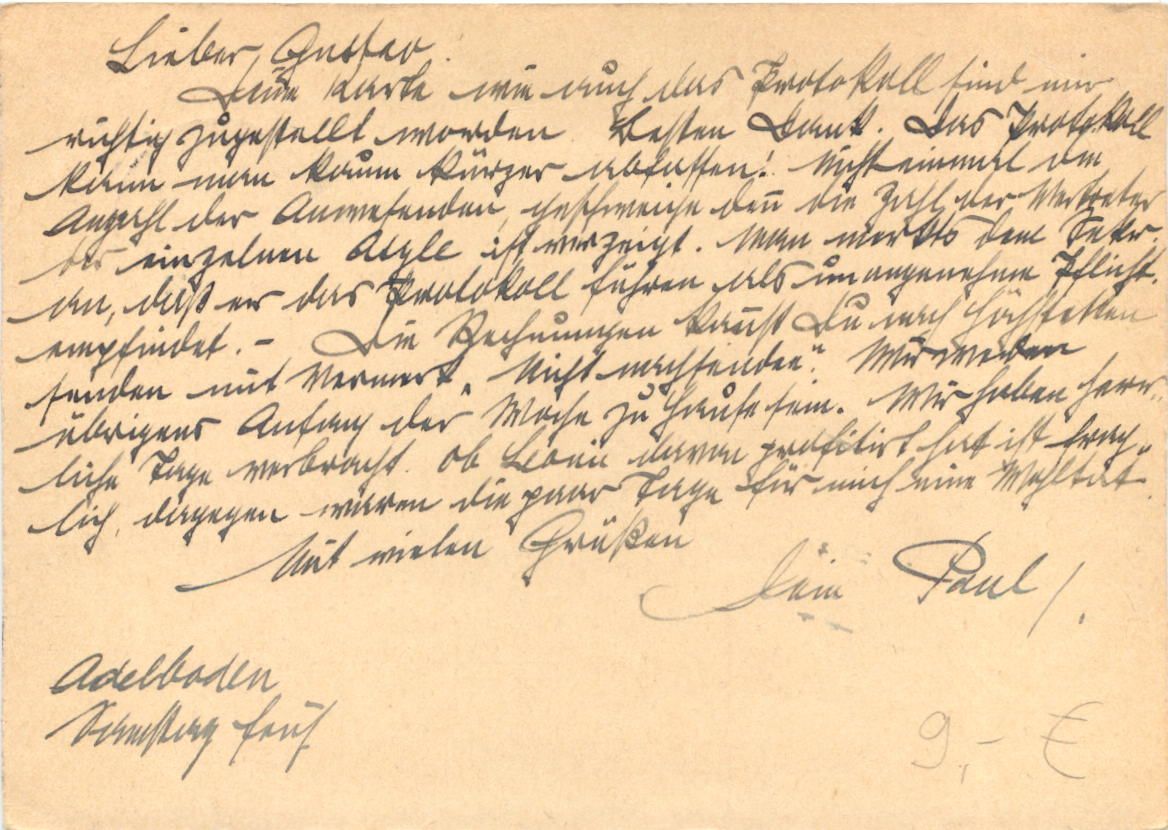 Lieber Gustav.
Deine Karte wie auch das Protokoll sind mir
richtig zugestellt worden. Besten Dank. Das Protokoll
kann man kaum kürzer abfassen! Nicht einmal die
Anzahl der Anwesenden, geschweige deñ die Zahl der Vertreter
der einzelnen ist verzeigt. Man merkts dem Sekr.
an, daß er das Protokoll führen als unangenehme Pflicht
empfindet. – Die Rechnungen kañst Du nach Höchstetten
senden mit Vermerk „Nicht nachsenden“. Wir werden
übrigens Anfang der Woche zu Hause sein. Wir haben herr-
liche Tage verbracht. Ob davon profitirt hat ist frag-
lich, dagegen waren die paar Tage für mich eine Wohltat.
Mit vielen Grüßen
Dein Paul /.
Adelboden
Samstag früh
9,- €